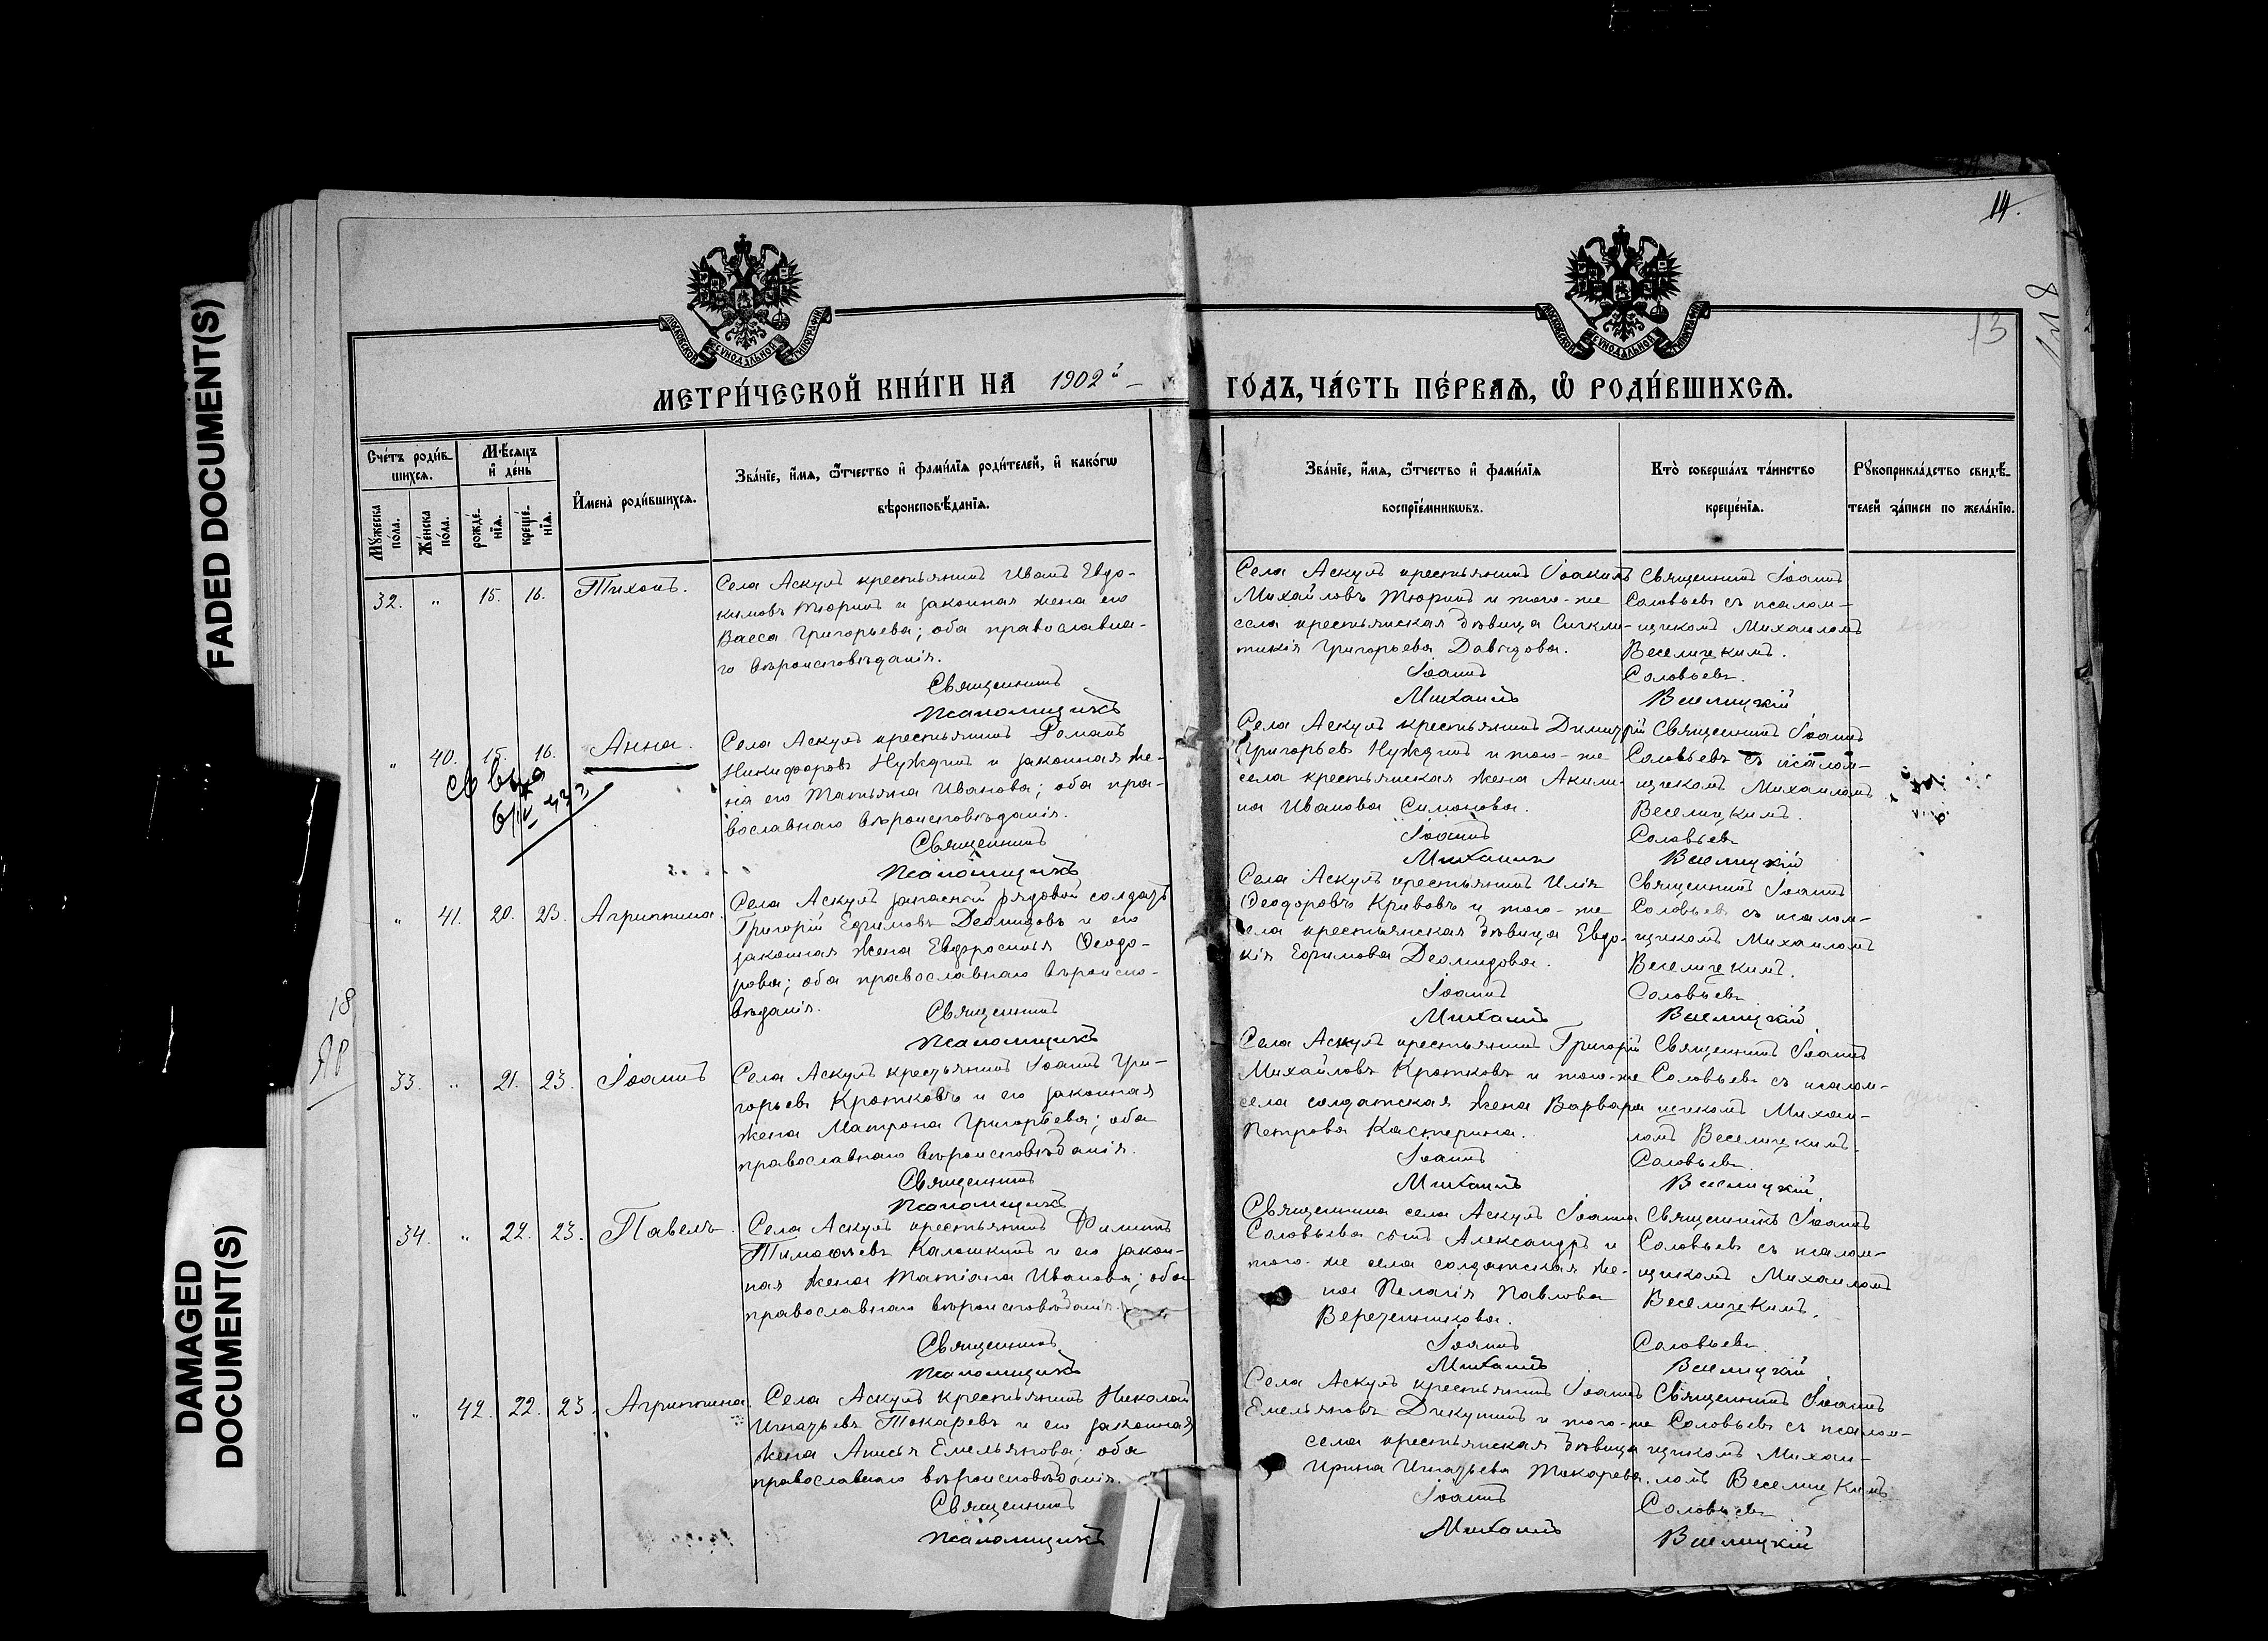 FADED DOCUMENT(S)
DAMAGED
DOCUMENT(S)
14.
13
18
МОСКОВСКОЙ СѴНОДАЛЬНОЙ ТИПОГРАФІИ
МОСКОВСКОЙ СѴНОДАЛЬНОЙ ТИПОГРАФІИ
МЕТРИ́ЧЕСКОЙ КНИ́ГИ НА 1902й
ГО́ДЪ, ЧА́СТЬ ПЕ́РВАѦ, Ѽ РОДИ́ВШИХСѦ.
Сче́тъ роди́в-
шихсѧ.
Мѣ́сяцъ
и҆ де́нь
Му́жеска
по́ла.
Же́нска
по́ла.
рожде́-
нїѧ.
креще́-
нїѧ.
И҆мена̀ роди́вшихсѧ.
Зва́нїе, и҆́мѧ, ѻ҆́тчество и҆ фами́лїѧ роди́телей, и҆ како́гѡ
вѣроисповѣ́данїѧ.
Зва́нїе, и҆́мѧ, ѻ҆́тчество и҆ фами́лїѧ
воспрїе́мникѡвъ.
Кто̀ соверша́лъ та́инство
креще́нїѧ.
Рꙋкоприкла́дство свидѣ́-
телей за́писи по жела́нїю.
32. „ 15. 16. Тихонъ.
Села Аскулъ крестьянинъ Иванъ Евдо-
кимовъ Тюринъ и законная жена его
Васса Григорьева; оба православна-
го вѣроисповѣданія.
Священникъ
Псаломщикъ
Села Аскулъ крестьянинъ Іоакимъ
Михайловъ Тюринъ и того-же
села крестьянская дѣвица Синкли-
тикія Григорьева Давыдова.
Іоаннъ
Михаилъ
Священникъ Іоаннъ
Соловьевъ съ псалом-
щикомъ Михаиломъ
Веселицкимъ.
Соловьевъ.
Веселицкій
„ 40. 15. 16. Анна.
Села Аскулъ крестьянинъ Романъ
Никифоровъ Нуждинъ и законная же-
на его Татьяна Иванова; оба пра-
вославнаго вѣроисповѣданія.
Священникъ
Псаломщикъ
Села Аскулъ крестьянинъ Димитрій
Григорьевъ Нуждинъ и того-же
села крестьянская жена Акили-
на Иванова Симонова.
Іоаннъ
Михаилъ
Священникъ Іоаннъ
Соловьевъ съ псалом-
щикомъ Михаиломъ
Веселицкимъ.
Соловьевъ
Веселицкій
„ 41. 20. 23. Агриппина.
Села Аскулъ запасной рядовой солдатъ
Григорій Ефимовъ Деомидовъ и его
законная жена Евфросинья Ѳеодо-
рова; оба православнаго вѣроиспо-
вѣданія.
Священникъ
Псаломщикъ
Села Аскулъ крестьянинъ Илія
Ѳеодоровъ Кривовъ и того-же
села крестьянская дѣвица Евдо-
кія Ефимова Деомидова.
Іоаннъ
Михаилъ
Священникъ Іоаннъ
Соловьевъ съ псалом-
щикомъ Михаиломъ
Веселицкимъ.
Соловьевъ
Веселицкій
18
33. „ 21. 23. Іоаннъ
Села Аскулъ крестьянинъ Іоаннъ Гри-
горьевъ Кротковъ и его законная
жена Матрона Григорьева; оба
православнаго вѣроисповѣданія.
Священникъ
Псаломщикъ
Села Аскулъ крестьянинъ Григорій
Михайловъ Кротковъ и того-же
села солдатская жена Варвара
Петрова Кастерина.
Іоаннъ
Михаилъ
Священникъ Іоаннъ
Соловьевъ съ псалом-
щикомъ Михаи-
ломъ Веселицкимъ.
Соловьевъ.
Веселицкій.
34. „ 22. 23. Павелъ.
Села Аскулъ крестьянинъ Филиппъ
Тимоѳеевъ Калашкинъ и его закон-
ная жена Татіана Иванова; оба
православнаго вѣроисповѣданія.
Священникъ
Псаломщикъ
Священника села Аскулъ Іоанна
Соловьева сынъ Александръ и
того-же села солдатская же-
на Пелагія Павлова
Веретенникова.
Іоаннъ
Михаилъ
Священникъ Іоаннъ
Соловьевъ съ псалом-
щикомъ Михаиломъ
Веселицкимъ.
Соловьевъ.
Веселицкій.
„ 42. 22. 23. Агриппина.
Села Аскулъ крестьянинъ Николай
Игнатьевъ Токаревъ и его законная
жена Анисья Емельянова; оба
православнаго вѣроисповѣданія.
Священникъ
Псаломщикъ
Села Аскулъ крестьянинъ Іоаннъ
Емельяновъ Дикупинъ и того-же
села крестьянская дѣвица
Ирина Игнатьева Токарева.
Іоаннъ
Михаилъ
Священникъ Іоаннъ
Соловьевъ съ псалом-
щикомъ Михаи-
ломъ Веселицкимъ
Соловьевъ
Веселицкій